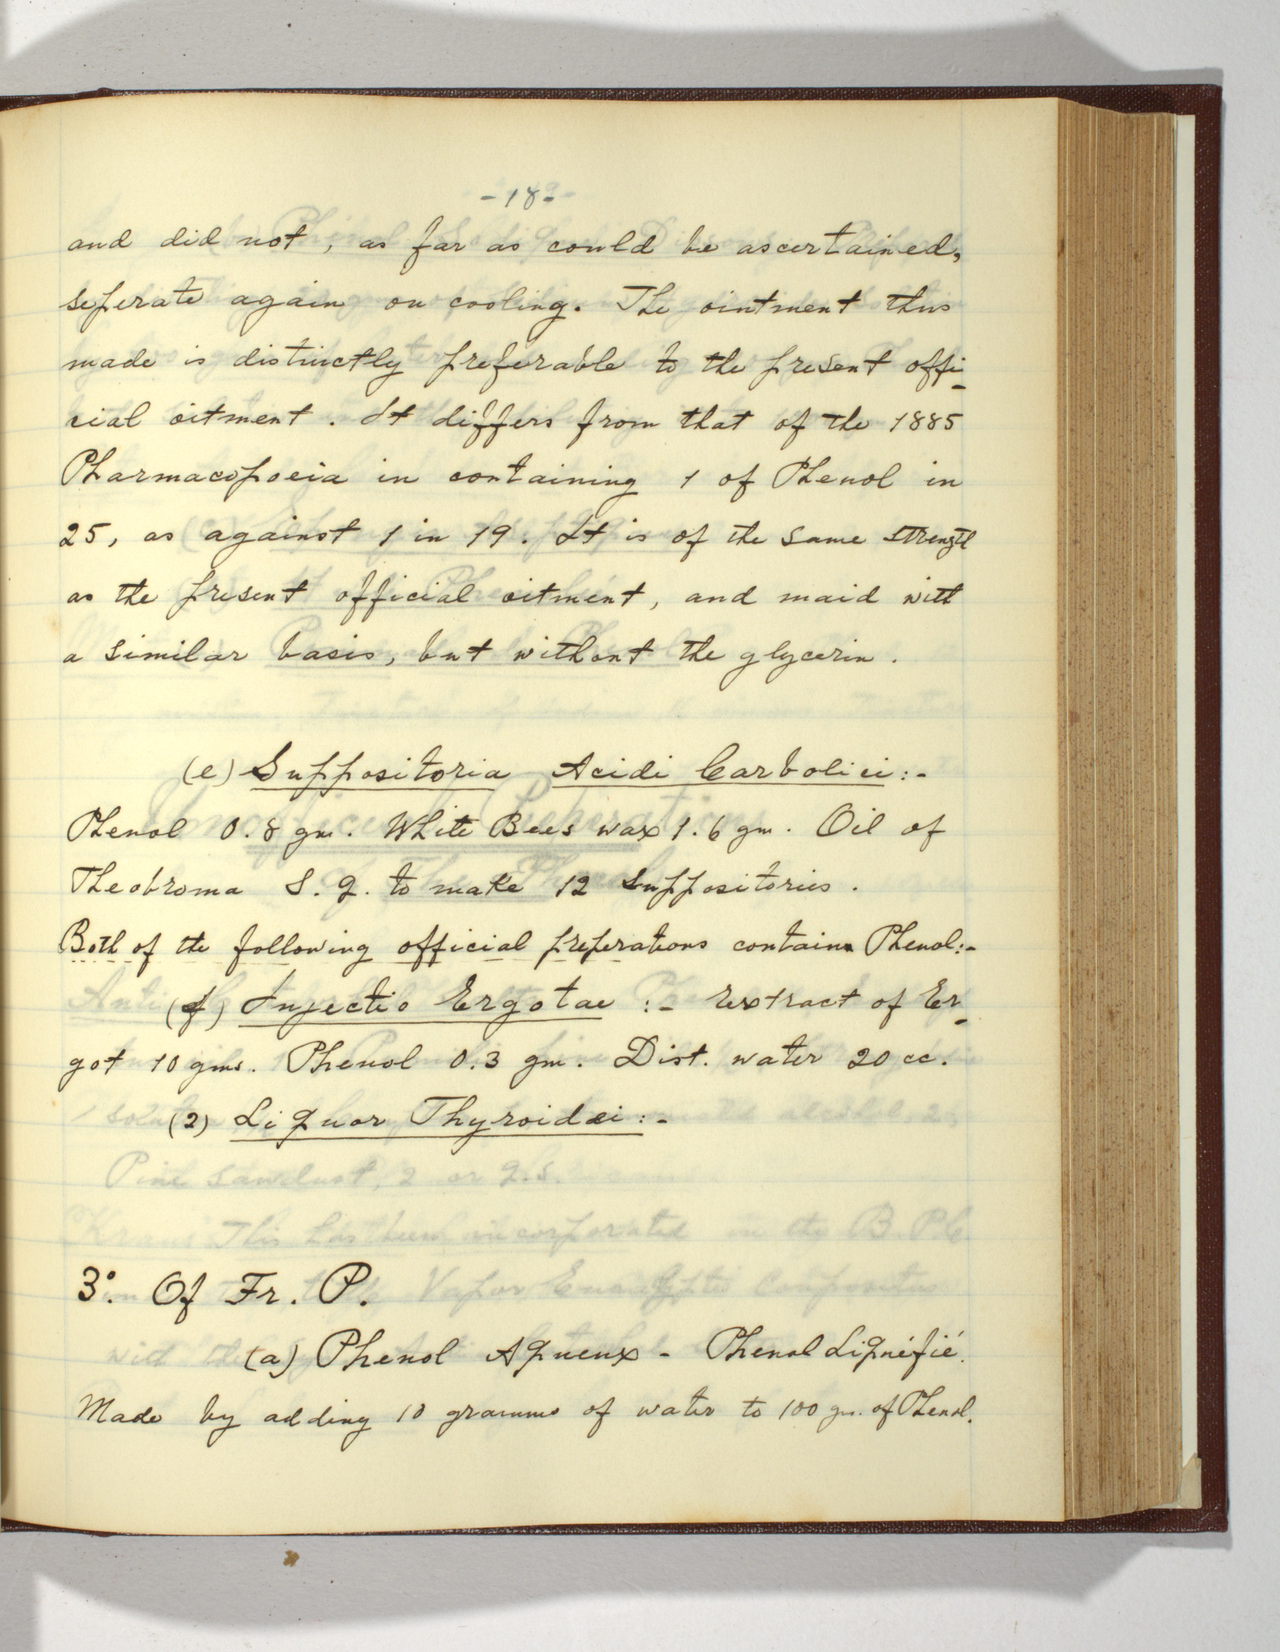 -18-
and did not, as far as could be ascertained,
seperate again on cooling. The ointment thus
made is distinctly preferable to the present offi-
cial oitment. It differs from that of the 1885
Pharmacopoeia in containing 1 of Phenol in
25, as against 1 in 19. It is of the same strength
as the present official oitment, and maid with
a similar basis, but without the glycerin.
(e) Suppositoria Acidi Carbolici:-
Phenol 0.8 gm. White Bees wax 1.6 gm. Oil of
Theobroma S. q. to make 12 Suppositories.
Both of the following official preperations contain Phenol:-
(f) Injectio Ergotae :- Extract of Er-
got 10 gms. Phenol 0.3 gm. Dist. water 20 cc.
(2) Liquor Thyroidei:-
3°. Of Fr. P.
(a) Phenol Aqueux - Phenol Liquéfié.
Made by adding 10 gramms of water to 100 gm. of Phenol.